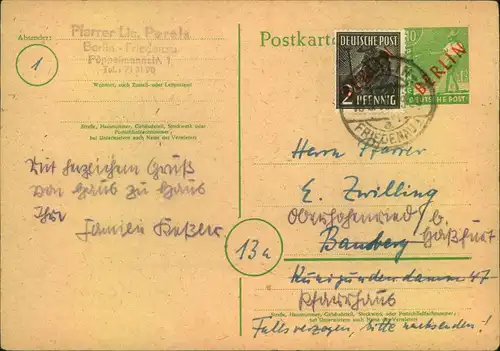 Absender:
Pfarrer Lic. Perels
Berlin-Friedenau
Pöppelmannstr. 1
Tel.: 71 31 90
1
Wohnort, auch Zustell- oder Leitpostamt
Straße, Hausnummer, Gebäudeteil, Stockwerk oder
Postschließfachnummer;
bei Untermietern auch Name des Vermieters
Mit herzlichem Gruß
von Haus zu Haus
Ihre
Familie Keßler
Postkarte
DEUTSCHE POST
2 PFENNIG
BERLIN
DEUTSCHE POST
FRIEDENAU
Herrn Pfarrer
E. Zwilling
Oberhohenried b.
Bamberg Haßfurt
13a
Kunigundendamm 47
Pfarrhaus
Straße, Hausnummer, Gebäudeteil, Stockwerk oder Postschließfachnummer;
bei Untermietern auch Name des Vermieters
Falls verzogen, bitte nachsenden!